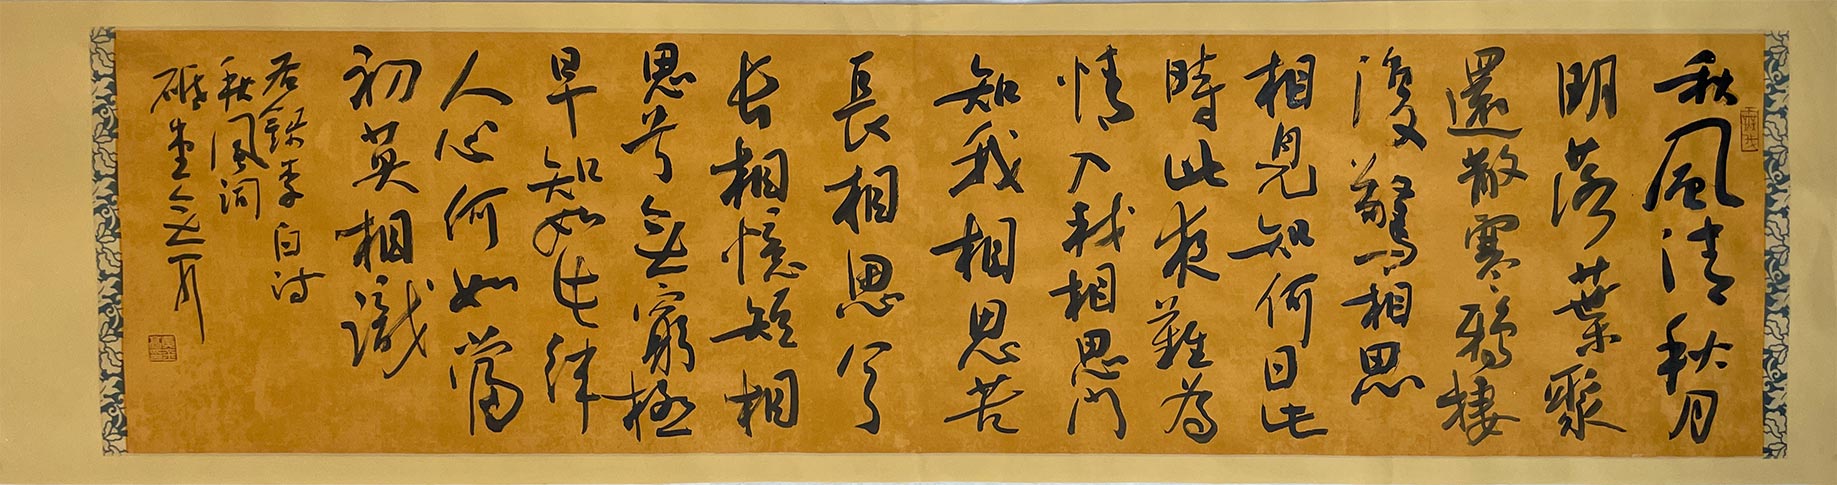 秋風清秋月
明落葉聚
還散寒鴉棲
復驚相思
相見知何日此
時此夜難為
情入我相思門
知我相思苦
長相思兮
長相憶短相
思兮無窮極
早知如此絆
人心何如當
初莫相識
右錄李白詩
秋風詞